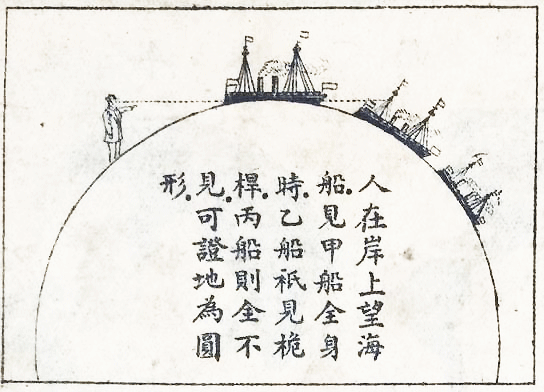 人在岸上望海
船、見甲船全身
時、乙船祇見桅
桿、丙船則全不
見、可證地為圓
形、